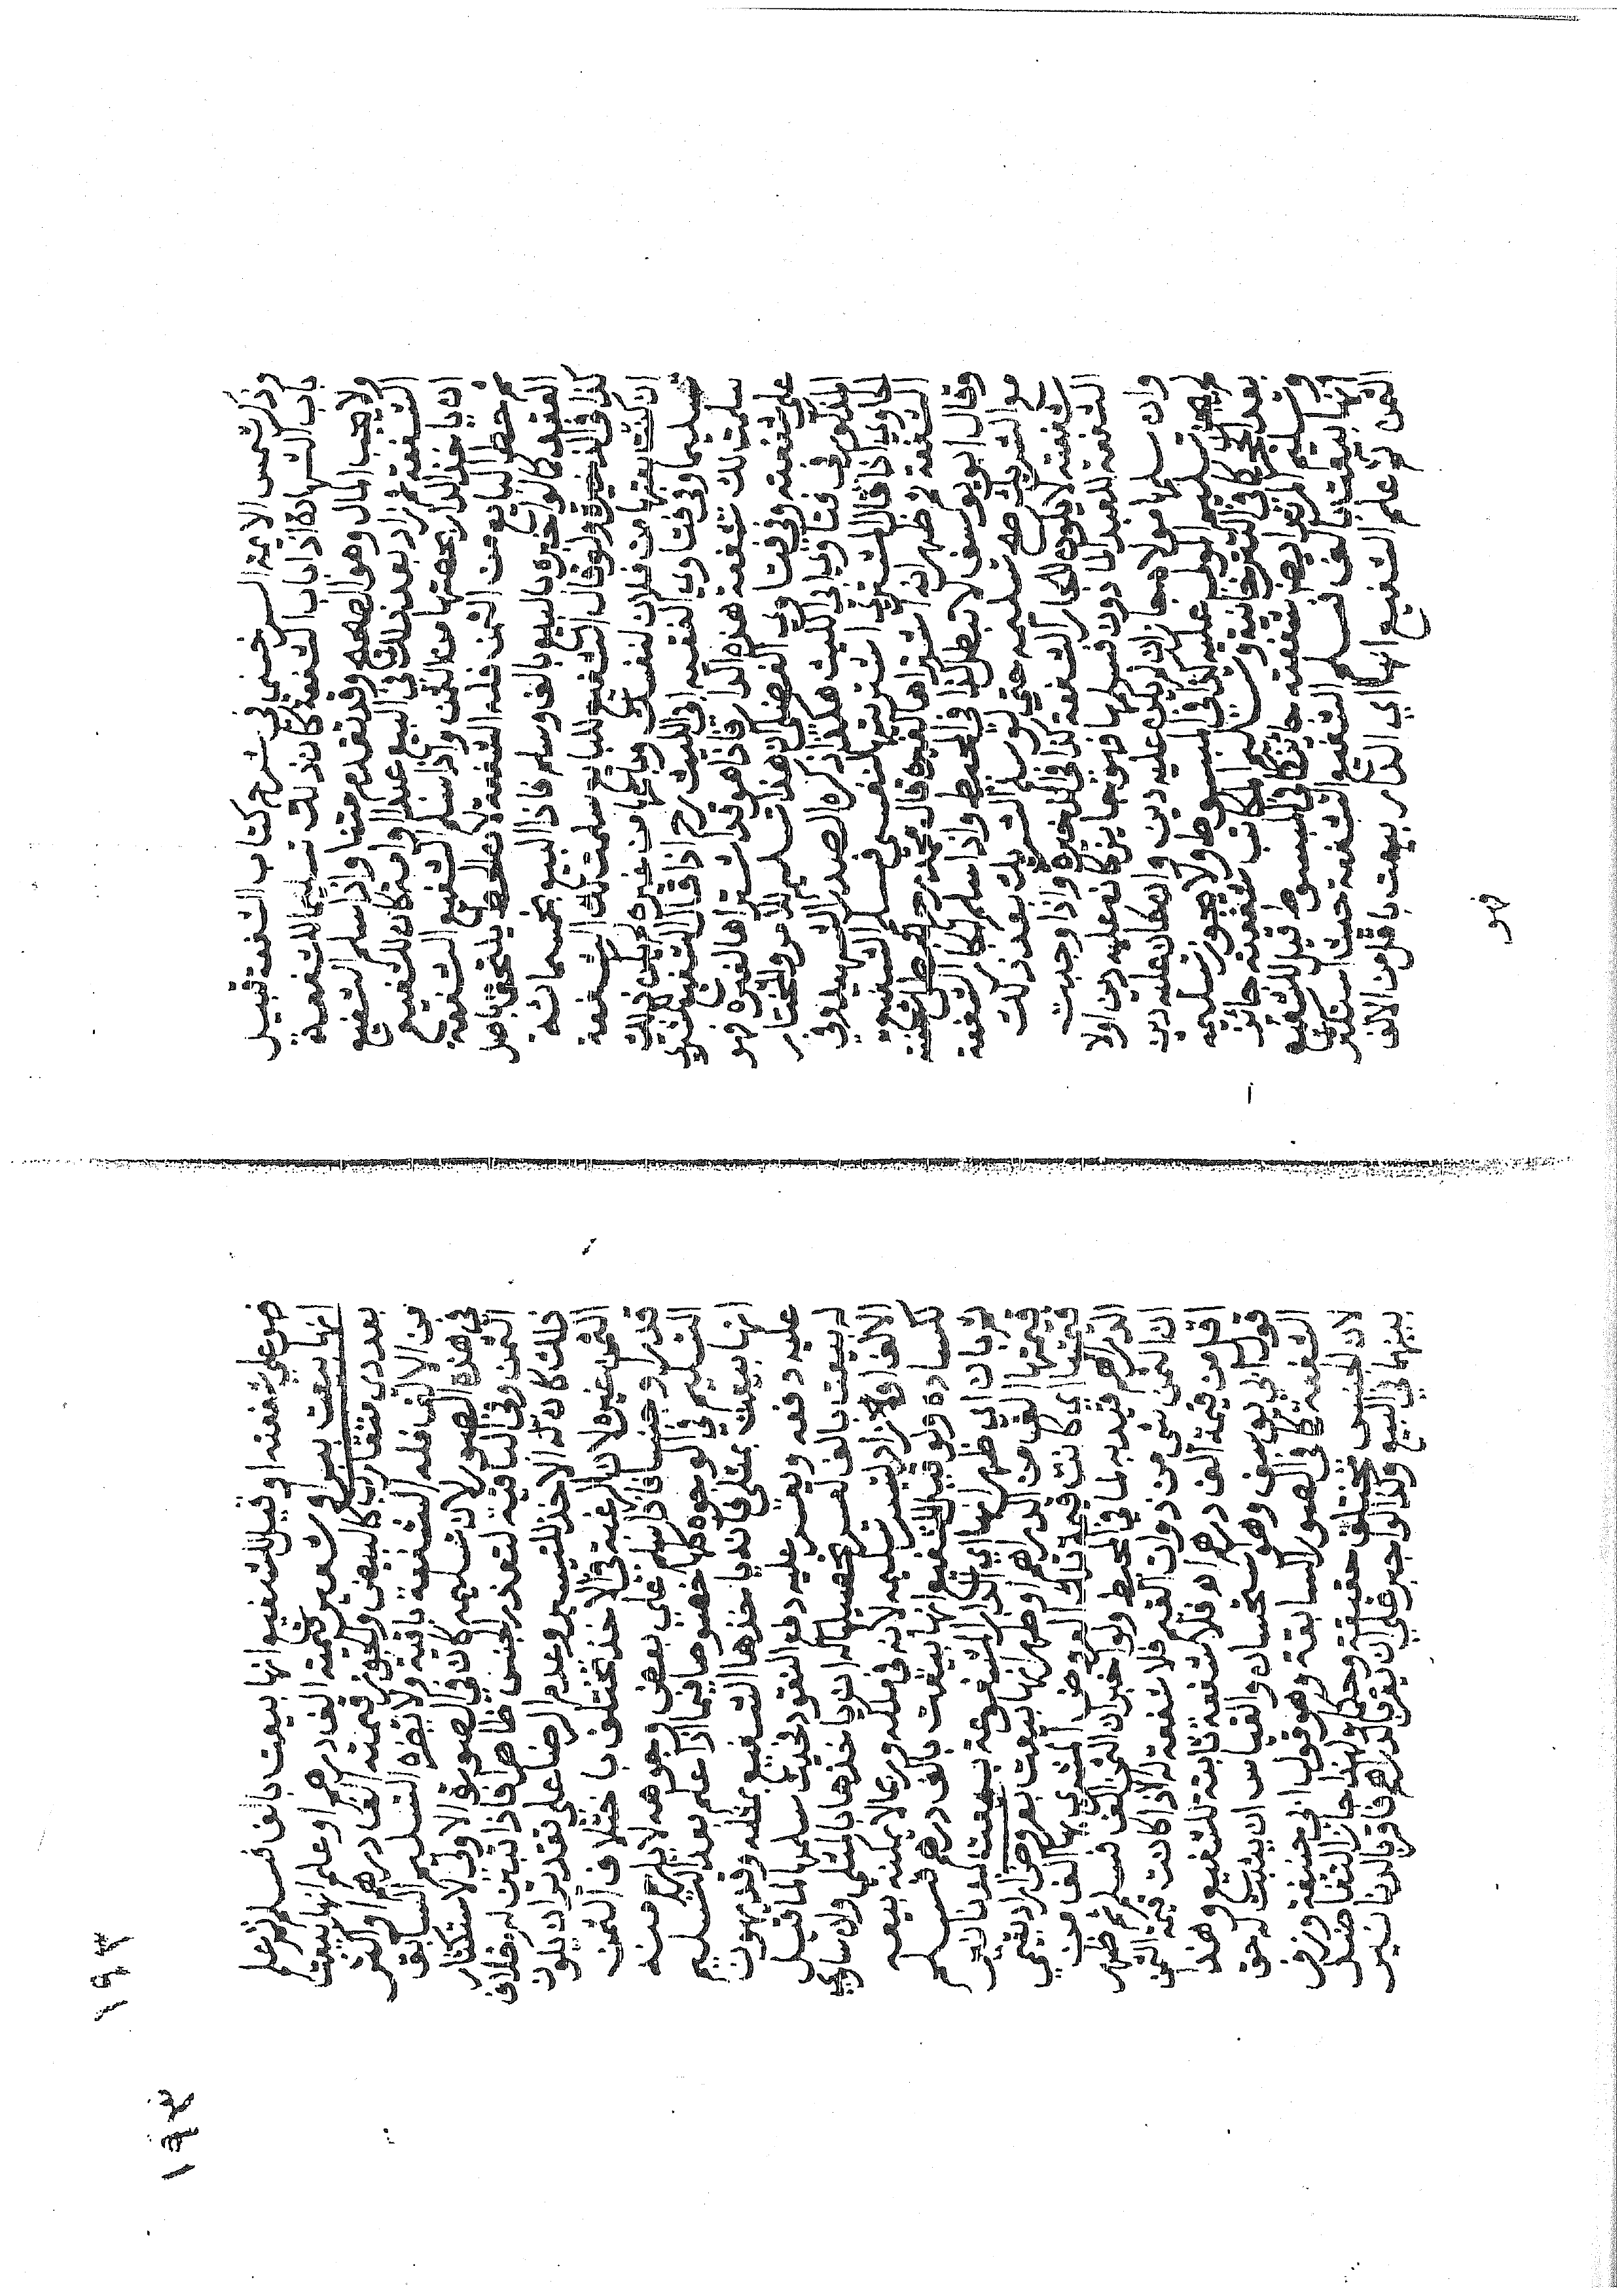 وذكر شمس الايمة السرخسي في شرح كتاب الشفعة قبيل
باب الشهادة اذا باب الشفعة كان ذلك تسليما للشفعة
ولا يجب المال وهو الصحيح وقد تقدم متنا واذا سلم الشفيع
الشفعة ثم زاد بعد ذلك في البيع عبدا او امة كان للشفيع
ان ياخذ الدار بحصتها من الثمن واذا سلم الشفيع الشفعة
ثم حط البايع من الثمن فله الشفعة لان الحط يلتحق باصل
العقد كما لو اخبر بالبيع بالف وسلم فاذا البيع بخمسمائة
كذا في الذخيرة ولو قال الشفيع للبايع سلمت لك الشفعة
ان كنت بعتها من فلان لنفسك وباعها من غيره لم يكن ذلك
تسليما وفي فتاوي الفقيه ابي الليث رح اذا قال الشفيع للمشتري
سلمت لك شفعة هذه الدار فاذا هو قد اشتراها لغيره فهو
على شفعته وفي فتاوي الفضلي ان هذا تسليم للامر والمختار
المذكور في فتاوي ابي الليث هكذا ذكره الصدر الشهيد وفي
الحاوي اذا قال المشتري اشتريتها لنفسي فسلم الشفيع
الشفعة ثم ظهر انه اشتراها لغيره قال محمد رح تبطل شفعته
وقال ابو يوسف لا تبطل كذا في المحيط واذا سلم الجار الشفعة
مع الشريك صح تسليمه حتى لو سلم الشريك بعد ذلك
شفعته لا يكون للجار الشفعة كذا في الذخيرة واذا وجبت
الشفعة للعبد الماذون فسلمها فهو جايز كان عليه دين اولا
وان سلمها مولاه جاز ان لم يكن عليه دين وان كان عليه دين
لم يجز تسليم المولى عليه كذا في المبسوط ولا يجوز تسليمه
بعد الحجر كما في التتر خانية وتسليم المكاتب شفعته جائز
وتسليم المرتد ايضا شفعته جائز كما في المبسوط قيل للشفيع
انها بيعت بالف فسلم الشفيع الشفعة حيث استكثر
الثمن ثم علم الشفيع انها اي الدار بيعت باقل من الالف
فهو
١٩٣
فهو على شفعته او قيل للشفيع انها بيعت بالف فسلم ثم علم
انها بيعت ببر او شعير قيمته الف درهم او علم انها بيعت
بعددي متقارب كالبيض والجوز قيمته الف درهم او اكثر
من الالف فله الشفعة باقية ولا يضره التسليم السابق
في هذه الصور لان تسليمه كان في الصورة الاولى لاستكثار
الثمن وفي الباقية لتعذر الجنس ظاهرا فاذا تبين له خلاف
ذلك كان له الاخذ للتيسير وعدم الرضا على تقدير ان يكون
الثمن غيره لان الرغبة في الاخذ تختلف باختلاف الثمن
قدرا وجنسا فاذا سلم على بعض وجوهه لا يلزم منه
التسليم في الوجوه كلها خصوصا فيما اذا علم بعد التسليم
انها بيعت بمثلي فانه ياخذها الشفيع بمثله وقد يهون
عليه دفعه ويعسر عليه دفع النقود فحيث سلمها لما قيل
له بيعت بالف لعسر تحصيله له ان ياخذها بالمثلي وان ساوي
الالف او زاد لتيسر تسليمه لانه في ملكه وربما لا يمكنه بيعه
لكساده ولو قيل للشفيع انها بيعت بالف درهم فسلم
ثم بان اي ظهر انها اي الدار المشفوعة بيعت بدنانير
قيمتها الف من الدراهم او ظهر انها بيعت بعروض ارادبقي
قيمتها اي كانت قيمة تلك العروض المشتري بها الف من
الدراهم قيد به لما في المحيط ولو اخبر ان الثمن الف فسلم ثم ظهر
ان الثمن شي من ذوات القيم فلا شفعة له اذا كانت قيمة الثمن
اقل من قيمة الف درهم او فلا شفعة ثابتة للشفيع وهذا
قول ابي يوسف وهو استحسان والقياس ان يثبت له حق
الشفعة كما في الصور السابقة وهو قول ابي حنيفة وزفر
لان الجنس مختلف حقيقة وحكما ولهذا جاز التفاضل
بينهما في البيع وكذا لو اجبر على ان يقر بالدراهم فاقر بالدنانير
١٩٣